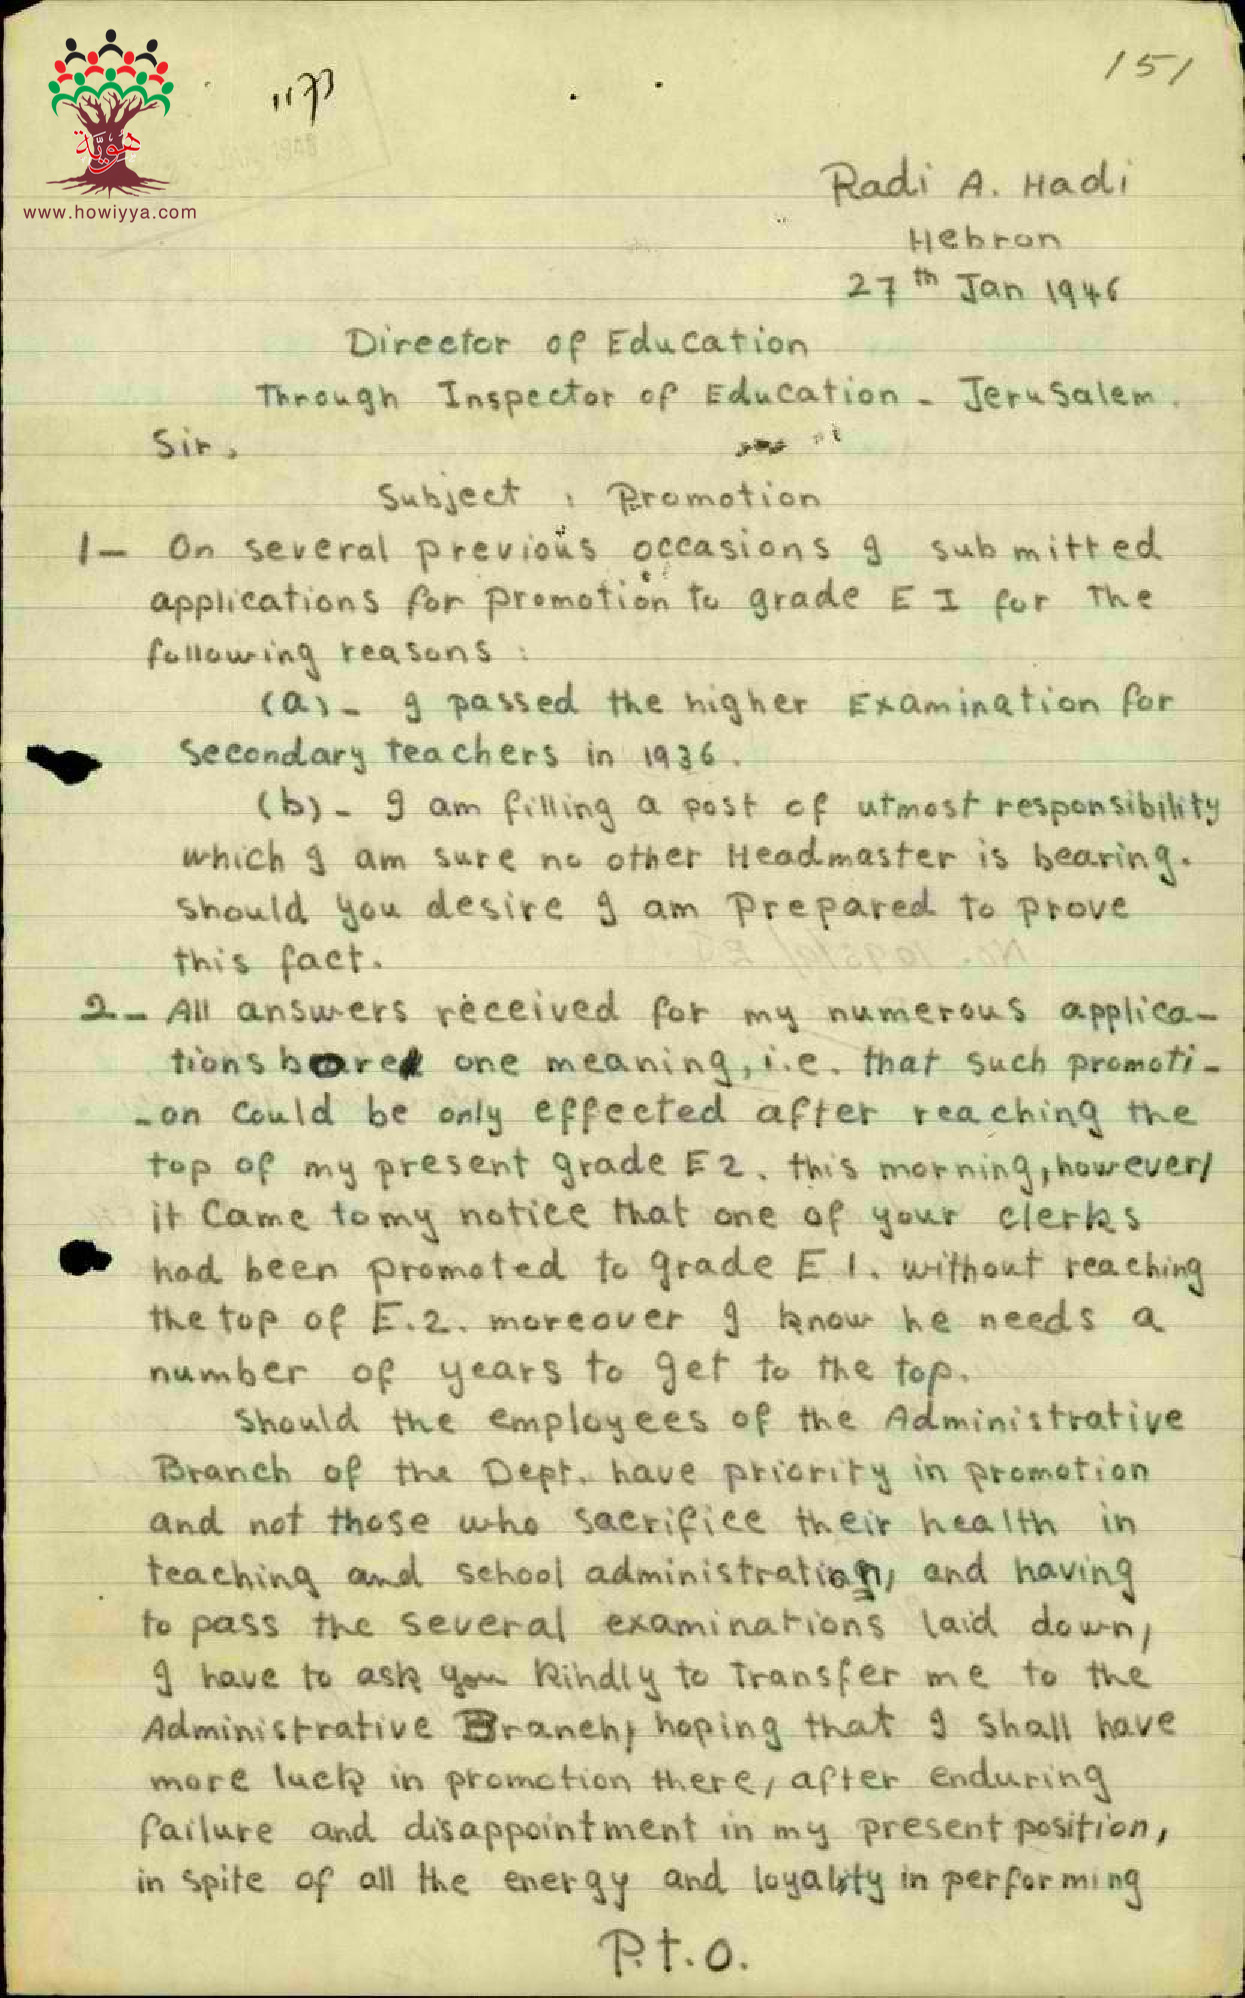 151
1173
هويّة
www.howiyya.com
Radi A. Hadi
Hebron
27th Jan 1946
Director of Education
Through Inspector of Education - Jerusalem.
Sir,
Subject : Promotion
1- On several previous occasions I submitted
applications for promotion to grade E I for the
following reasons :
(a) - I passed the higher Examination for
Secondary teachers in 1936.
(b) - I am filling a post of utmost responsibility
which I am sure no other Headmaster is bearing.
Should you desire I am prepared to prove
this fact.
2- All answers received for my numerous applica-
tions bore one meaning, i.e. that such promoti-
-on could be only effected after reaching the
top of my present grade E2. this morning, however,
it came to my notice that one of your clerks
had been promoted to grade E 1. without reaching
the top of E.2. moreover I know he needs a
number of years to get to the top.
Should the employees of the Administrative
Branch of the Dept. have priority in promotion
and not those who sacrifice their health in
teaching and school administration, and having
to pass the several examinations laid down,
I have to ask you kindly to transfer me to the
Administrative Branch, hoping that I shall have
more luck in promotion there, after enduring
failure and disappointment in my present position,
in spite of all the energy and loyalty in performing
P.t.O.